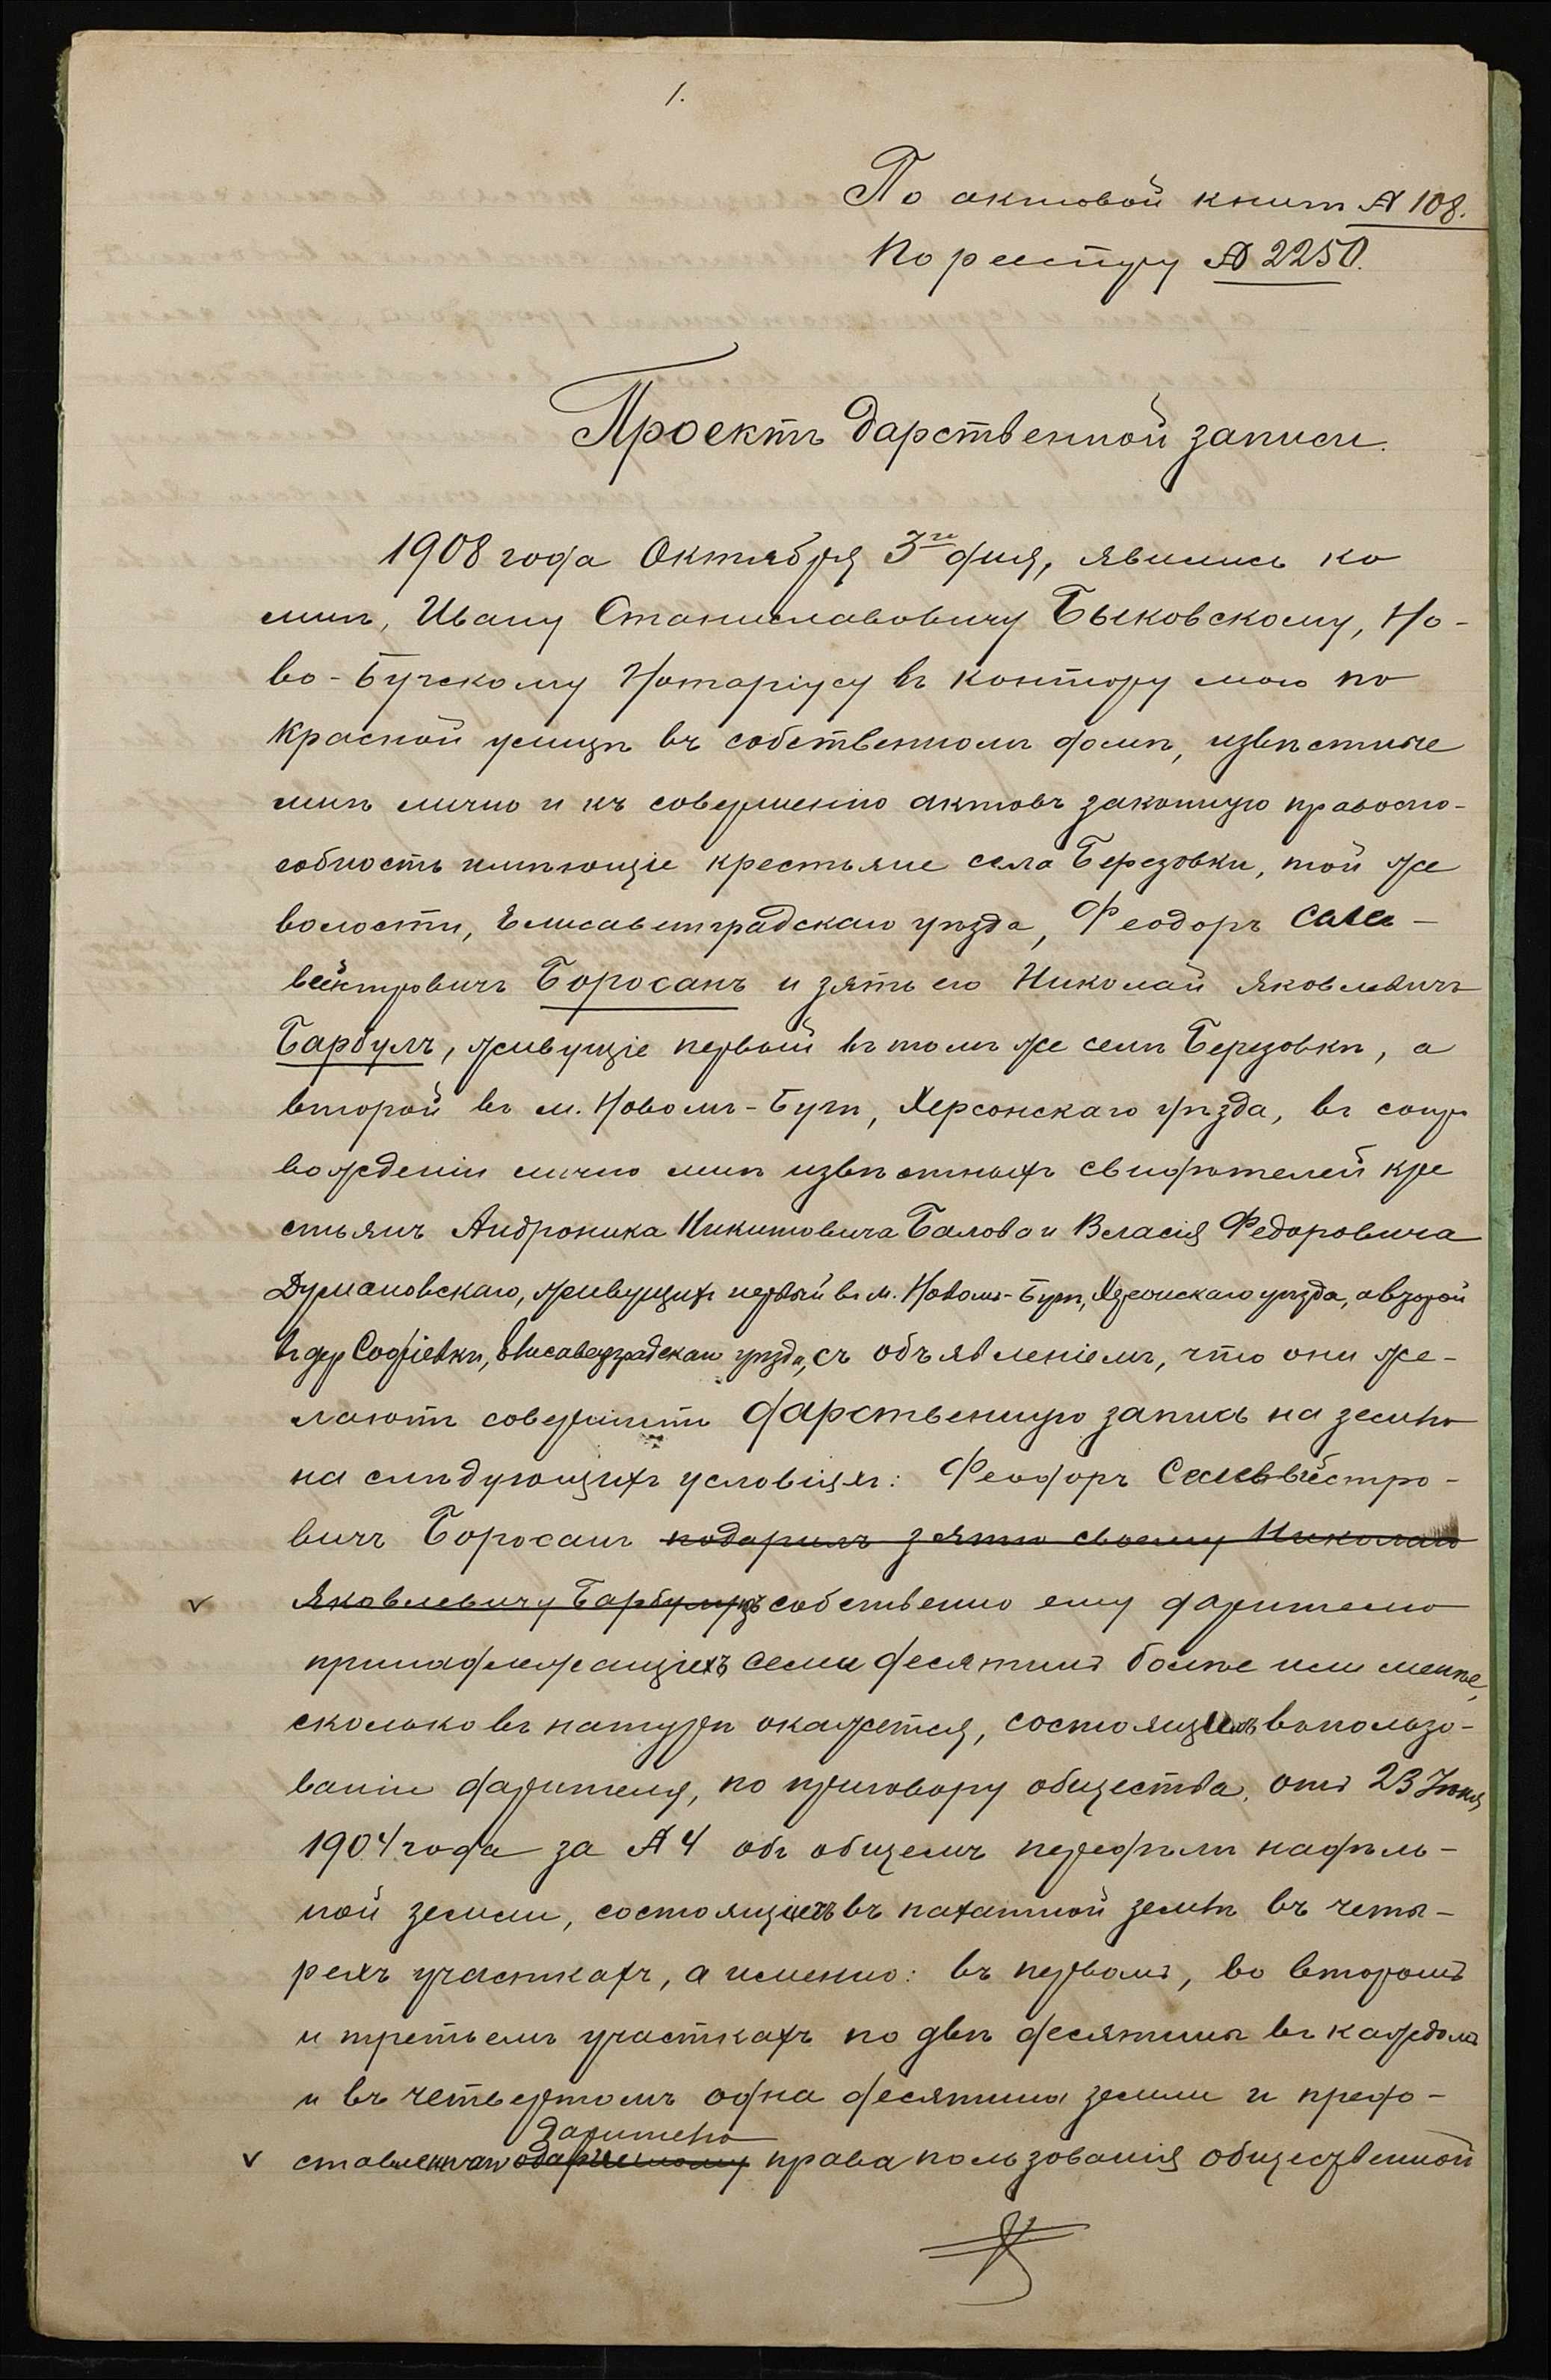 1.
По актовой книгѣ № 108.
По реестру № 2250.
Проектъ дарственной записи.
1908 года Октября 3го дня, явились ко
мнѣ, Ивану Станиславовичу Быковскому, Но-
во-Бугскому Нотаріусу въ контору мою по
Красной улицѣ въ собственномъ домѣ, извѣстные
мнѣ лично и къ совершенію актовъ законную правоспо-
собность имѣющіе крестьяне села Березовки, той же
волости, Елисаветградскаго уѣзда, Феодоръ
Боросанъ и зять его Николай Яковлевичъ
Барбулъ, живущіе первый въ томъ же селѣ Березовкѣ, а
второй въ м. Новомъ-Бугѣ, Херсонскаго уѣзда, въ сопро
вожденіи лично мнѣ извѣстныхъ свидѣтелей кре
стьянъ Андроника Никитовича Балова и Власія Федоровича
Думановскаго, живущихъ первый въ м. Новомъ-Бугѣ, Херсонскаго уѣзда, а второй
въ дер Софіевкѣ, Елисаветградскаго уѣзда, съ объявленіемъ, что они же-
лаютъ совершить дарственную запись на землю
на слѣдующихъ условіяхъ: Феодоръ Селивёстро-
вичъ Боросанъ подарилъ зятю своему Николаю
Яковлевичу Барбулу изъ собственно ему дарителю
принадлежащихъ семи десятинъ болѣе или менѣе,
сколько въ натурѣ окажется, состоящихъ въ пользо-
ваніи дарителя, по приговору общества, отъ 23 Іюня
1904 года за № 4 объ общемъ передѣлѣ надѣль-
ной земли, состоящихъ въ пахатной землѣ въ четы-
рехъ участкахъ, а именно: въ первомъ, во второмъ
и третьемъ участкахъ по двѣ десятины въ каждомъ
и въ четвертомъ одна десятина земли и предо-
дарителю
ставленнаго одаренному права пользованія общественной